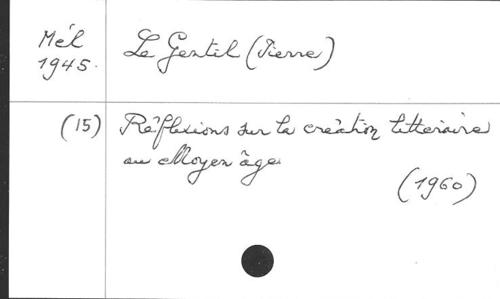 Mél
1945.
Le Gentil (Pierre)
(15)
Réflexions sur la création littéraire
au Moyen âge
(1960)